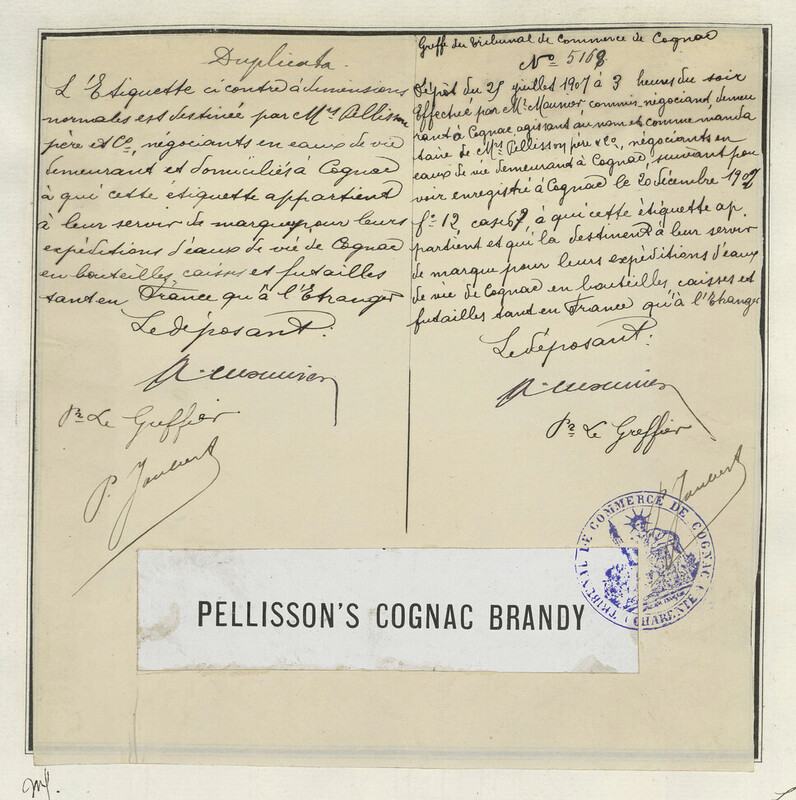 Duplicata.
L'Etiquette ci contre à dimensions
normales est destinée par Mrs Pellisson
père et Co, négociants en eaux de vie
demeurant et domiciliés à Cognac
à qui cette étiquette appartient
à leur servir de marque pour leurs
expéditions d'eaux de vie de Cognac
en bouteilles, caisses et futailles
tant en France qu'à l'Etranger
Le déposant:
Pr Le Greffier
P. Jaubert
Greffe du Tribunal de Commerce de Cognac
No 5168
Dépôt du 25 juillet 1907 à 3 heures du soir
Effectué par Mr Maunier commis-négociant, demeu
rant à Cognac, agissant au nom et comme manda
taire de Mrs Pellisson père & Co, négociants en
eaux de vie demeurant à Cognac, suivant pou
voir enregistré à Cognac le 20 décembre 1907
fo 12, case 67, à qui cette étiquette ap.
partient et qui la destinent à leur servir
de marque pour leurs expéditions d'eaux
de vie de Cognac en bouteilles, caisses et
futailles tant en France qu'à l'Etranger
Le déposant:
Pr Le Greffier
P. Jaubert
TRIBUNAL DE COMMERCE DE COGNAC (CHARENTE)
PELLISSON'S COGNAC BRANDY